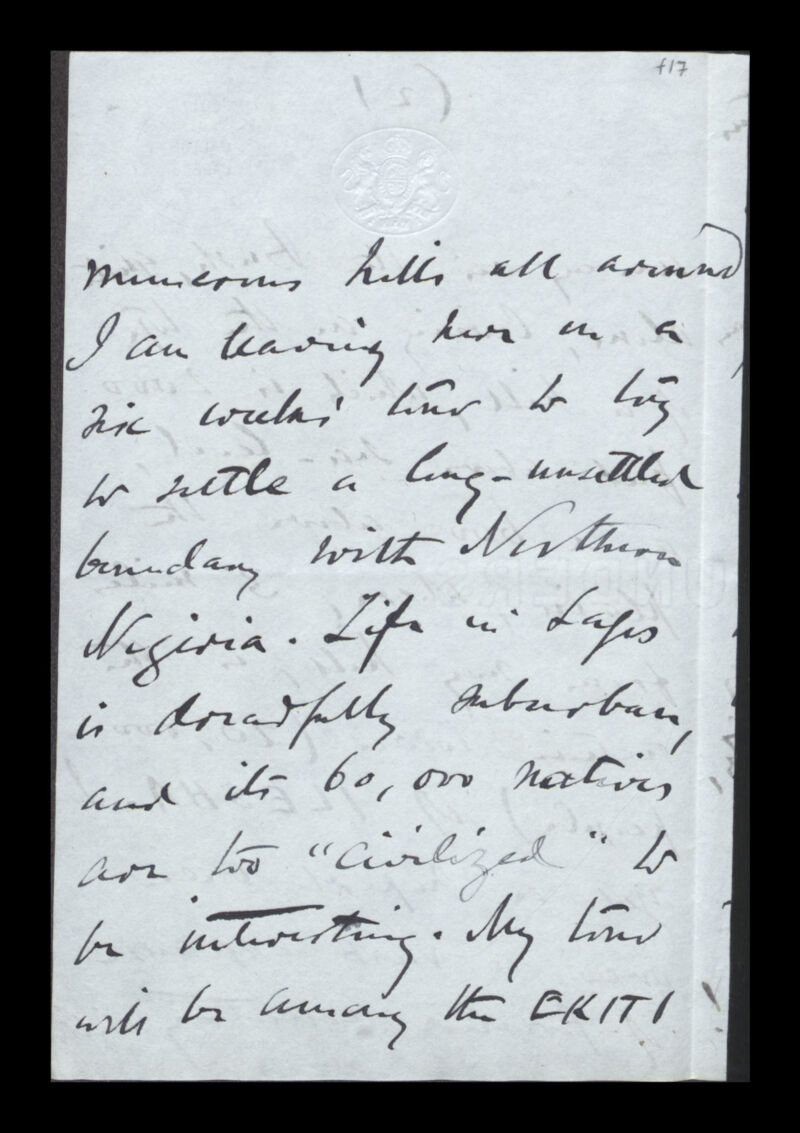 f17
numerous hills all around
I am leaving here on a
six weeks' tour to try
to settle a long-unsettled
boundary with Northern
Nigeria. Life in Lagos
is dreadfully suburban,
and its 60,000 natives
are too "civilized" to
be interesting. My tour
will be among the EKITI